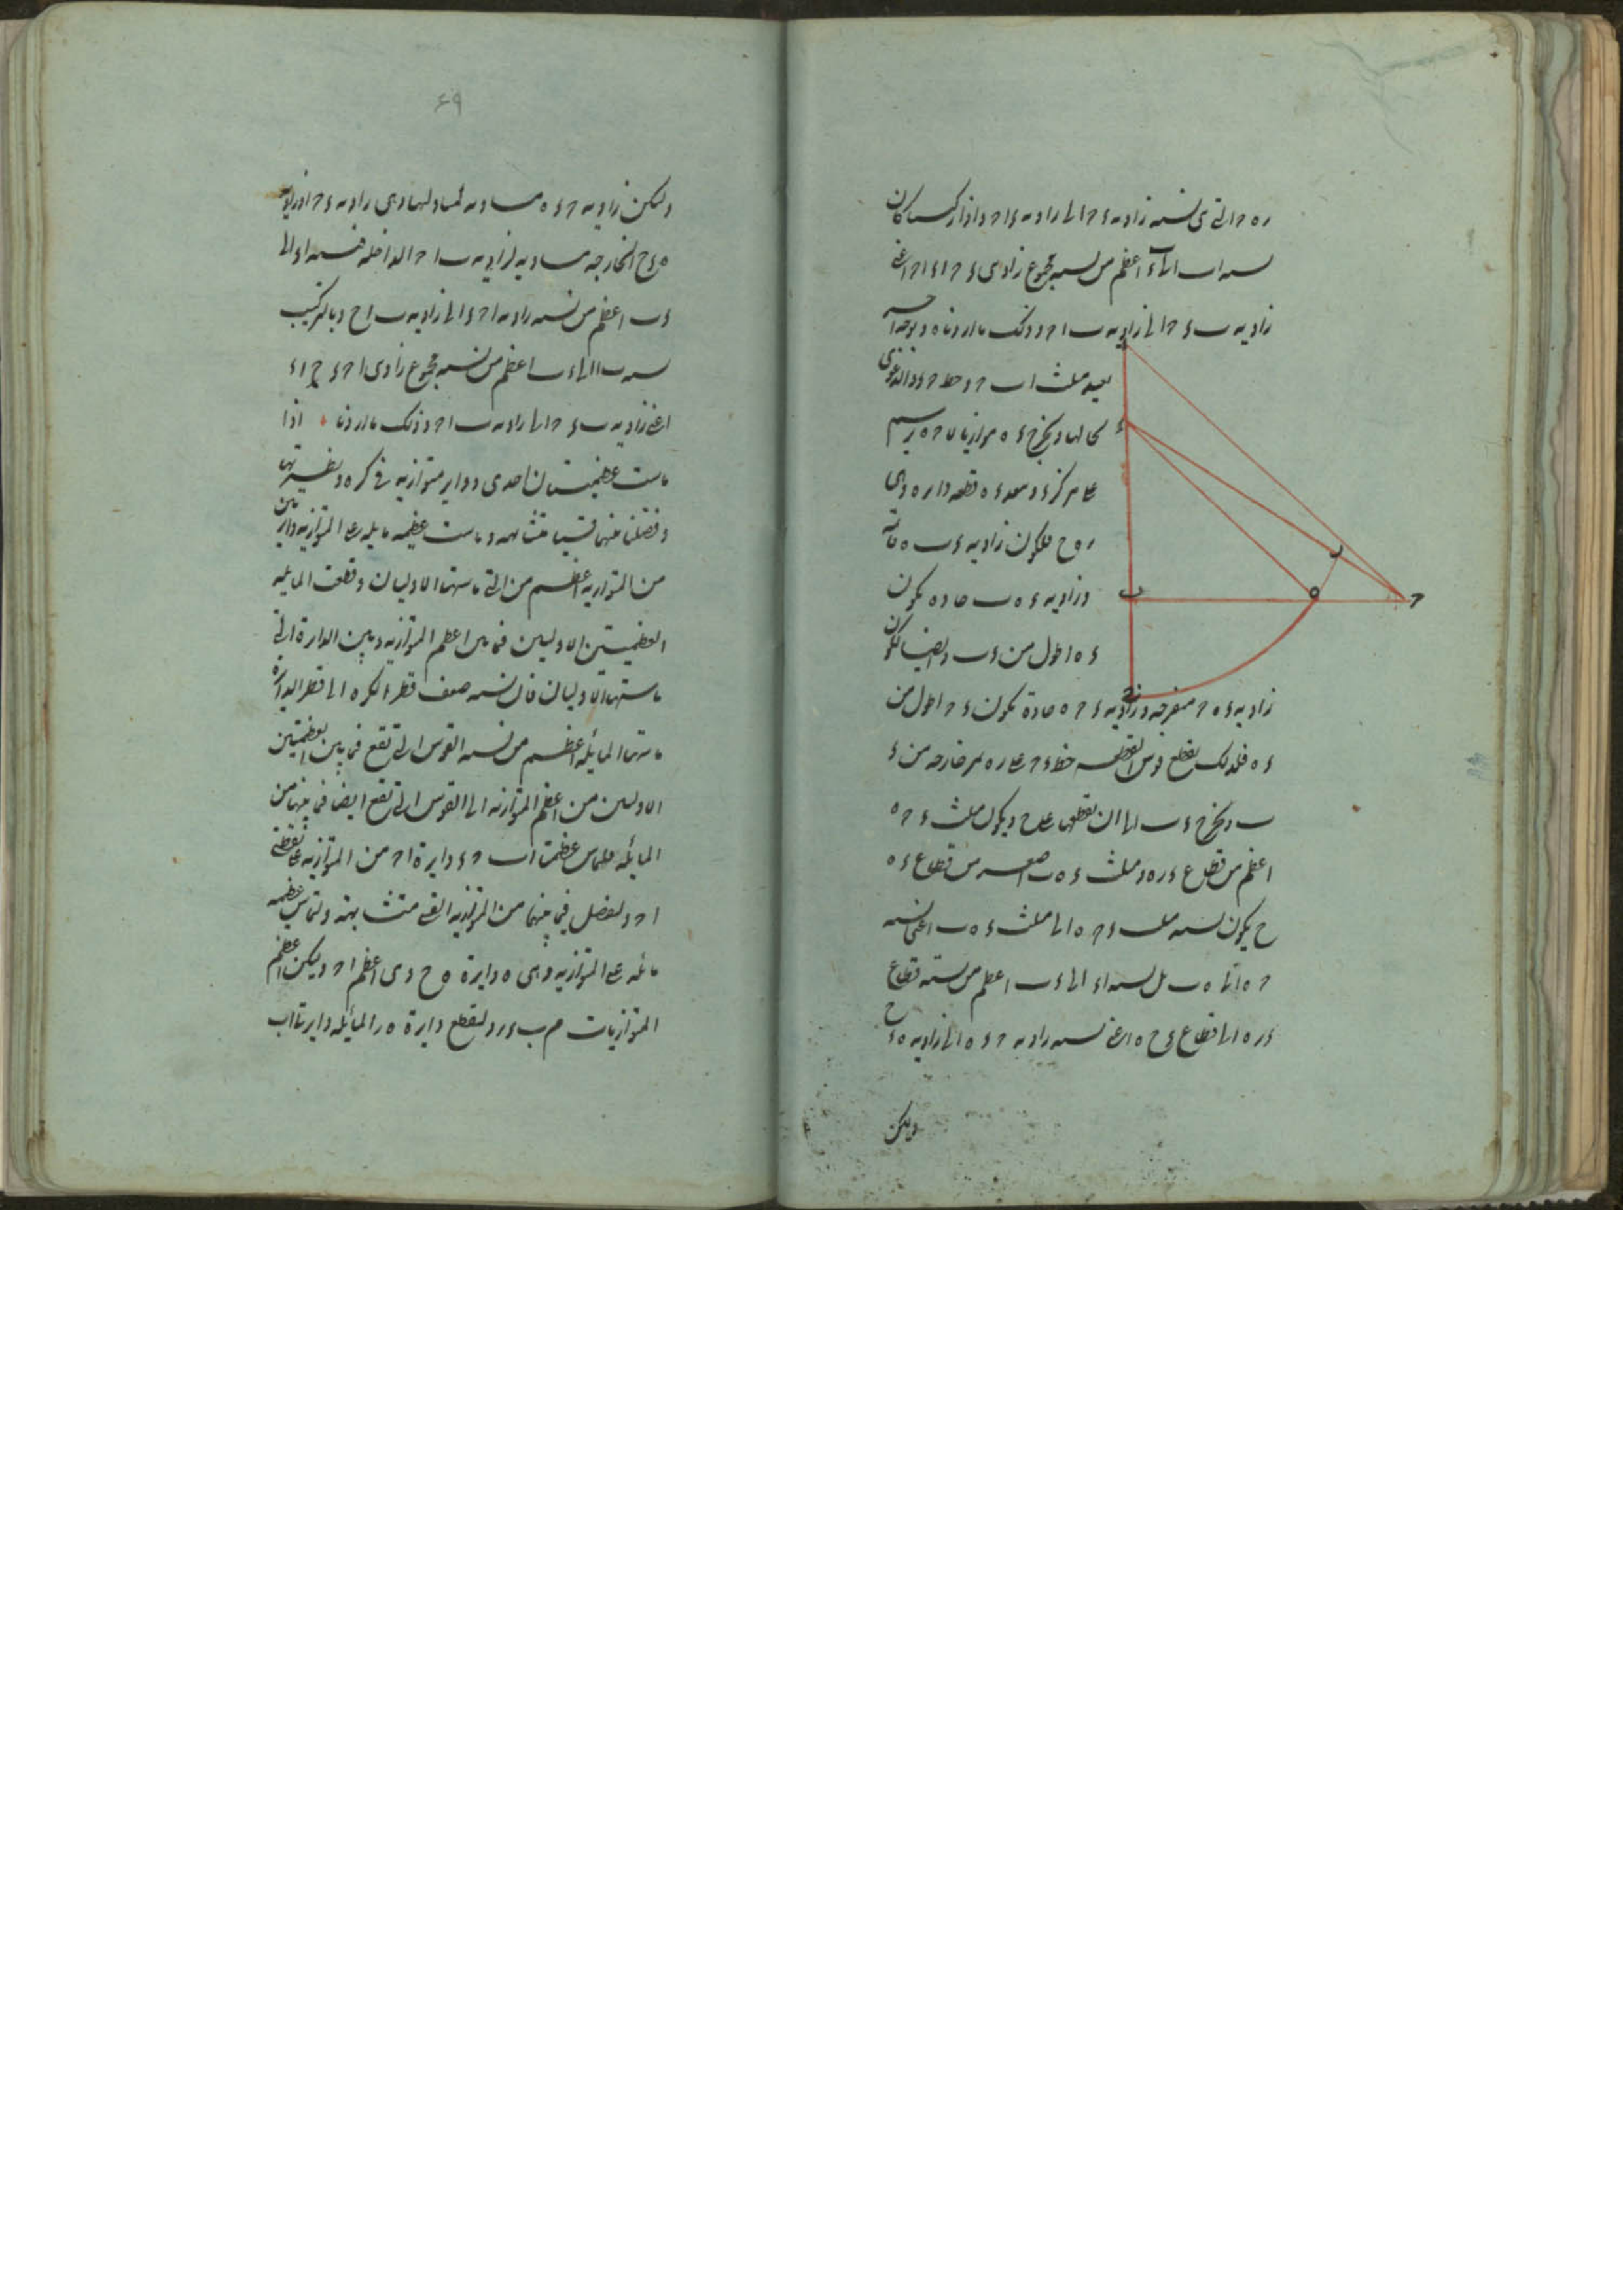 ره ح التي هي نسبة زاوية ء ح ا الى زاوية ء ا ح واذا ركبنا كان
نسبة اب الى اء اعظم من نسبة مجموع زاويتي ء ح ا ء ا ح اعني
زاوية ب ء ح الى زاوية ب ا ح وذلك ما اردناه وبوجه آخر
نعيد مثلث اب ح وخط ح ء والدعوى
بحالها ونخرج ء ه موازيا لا ح ونرسم
على مركز ء وببعد ء ه قطعة دايرة وهي
ر ه ح فلكون زاوية ء ب ه قائمة
وزاوية ء ه ب حادة يكون
ء ه اطول من ء ب وايضا لكون
زاوية ء ه ح منفرجة وزاوية ء ح ه حادة يكون ء ح اطول من
ء ه فلذلك يقطع قوس القطعة خط ء ح على ر ه خارجة من ء
ب ونخرج ء ب الى ان يقطعها على ح ويكون مثلث ء ح ه
اعظم من قطاع ء ر ه ومثلث ء ه ب اصغر من قطاع ء ه
ح يكون نسبة مثلث ء ح ه الى مثلث ء ه ب اعني نسبة
ح ه الى ه ب بل نسبة اء الى ء ب اعظم من نسبة قطاع
ء ر ه الى قطاع ء ح ه اعني نسبة زاوية ح ء ه الى زاوية ه ء ح
ولكن
ء
ر
ب
ه
ح
ح
۶۹
ولكن زاوية ح ء ه مساوية لمبادلتها وهي زاوية ء ح ا وزاوية
ه ء ح الخارجة مساوية لزاوية ب ا ح الداخلة فنسبة اء الى
ء ب اعظم من نسبة زاوية ا ح ء الى زاوية ب ا ح وبالتركيب
نسبة ب ا الى ء ب اعظم من نسبة مجموع زاويتي ا ح ء ح ا ء
اعني زاوية ب ء ح الى زاوية ب ا ح وذلك ما اردنا اذا
ماست عظيمتان احدى دواير متوازية في كرة ونظيرتها
وفصلتا فيما بينهما قسيا متشابهة وماست عظيمة مايلة على المتوازية دايرتين
من المتوازية اعظم من التي ماستها الاوليان وقطعت المايلة
العظيمتين الاوليين فيما بين اعظم المتوازية وبين الدايرة التي
ماستها الاوليان فان نسبة ضعف قطر الكرة الى قطر الدايرة
ماستها المايلة اعظم من نسبة القوس التي تقع فيما بين العظيمتين
الاوليين من اعظم المتوازية الى القوس التي تقع ايضا فيما بينهما من
المايلة فليماس عظيمتا اب ح ء دايرة ا ح من المتوازية على نقطتي
ا ح وليفصل فيما بينهما من المتوازية القسي متشابهة ولتماس عظيمة
مايلة على المتوازية وهي ه دايرة ه ح وهي اعظم ا ح وليكن اعظم
المتوازيات م ب ء ر وليقطع دايرة ه ر المايلة دايرتا اب